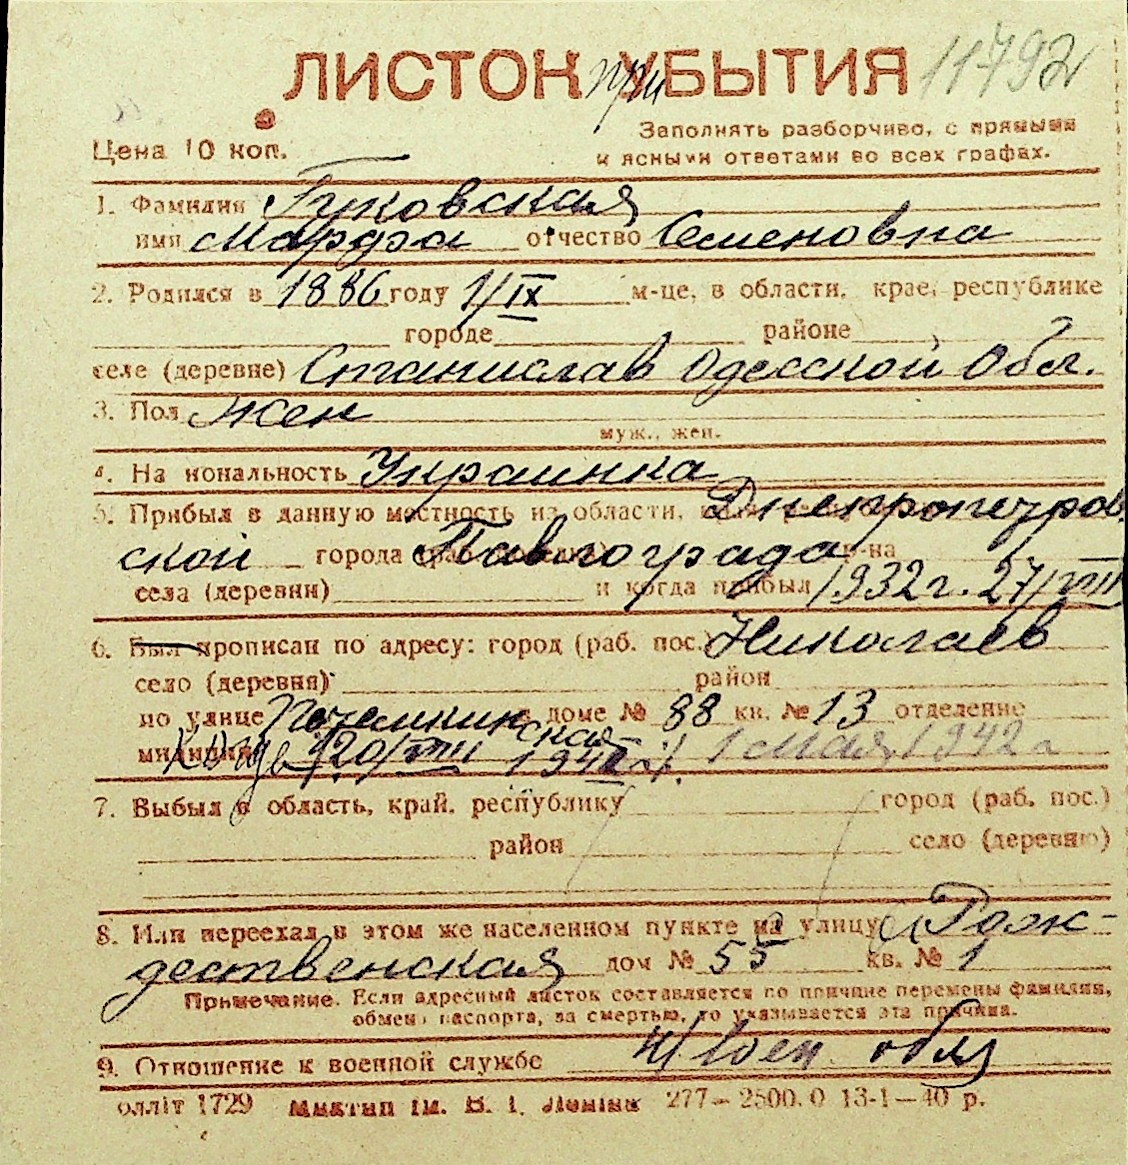 ЛИСТОК при УБЫТИЯ 11792
Заполнять разборчиво, с прямыми
Цена 10 коп. и ясными ответами во всех графах.
1. Фамилия Гуковская
имя Марфа отчество Семеновна
2. Родился в 1886 году 1/IX м-це, в области, крае, республике
городе районе
селе (деревне) Станислав Одесской обл.
3. Пол жен
муж., жен.
4. Национальность Украинка
5. Прибыл в данную местность из области, Днепропетров
ской города Павлограда р-на
села (деревни) и когда прибыл 1932 г. 27/VIII
6. Был прописан по адресу: город (раб. пос.) Николаев
село (деревня) район
по улице Потемкинская доме № 88 кв. № 13 отделение
милиции 20/VIII 1 мая 1942 г
7. Выбыл в область, край, республику город (раб. пос.)
район село (деревню)
8. Или переехал в этом же населенном пункте на улицу с Рож-
дественская дом № 55 кв. № 1
Примечание. Если адресный листок составляется по причине перемены фамилии,
обмена паспорта, за смертью, то указывается эта причина.
9. Отношение к военной службе н/воен обяз
олліт 1729 Миктип ім. В. І. Леніна 277—2500.0 13-1—40 р.